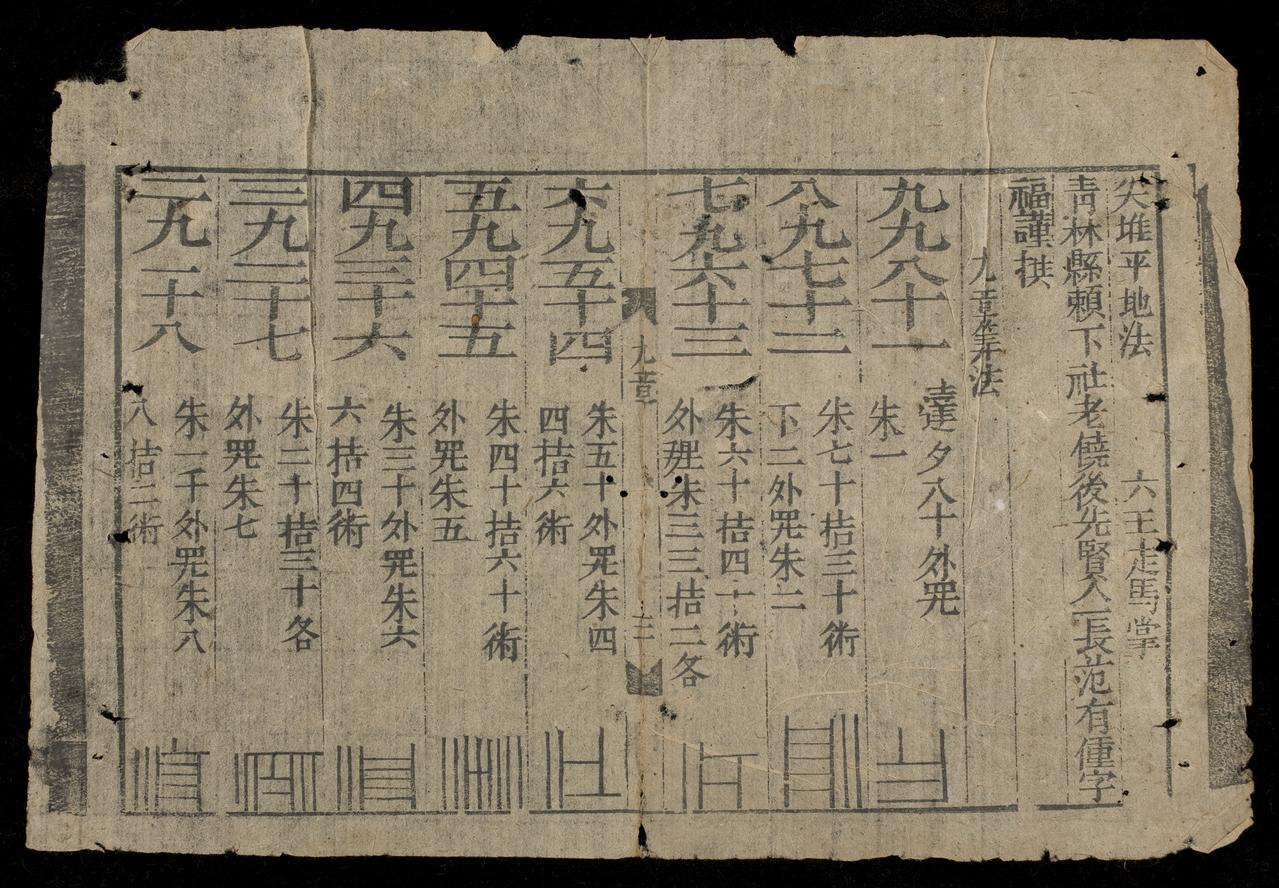 尖堆平地法 六王走馬掌
青林縣頼下社老饒後先賢入一長范有偅字
福謹撰
九章筭法
九九八十一
達夕八十外咒
朱一
八九七十二
朱七十拮三十術
下二外咒朱二
七九六十三
朱六十拮四十術
外理朱三三拮二各
九章
二
六九五十四
朱五十外咒朱四
四拮六術
五九四十五
朱四十拮六十術
外咒朱五
四九三十六
朱三十外咒朱六
六拮四術
三九二十七
朱二十拮三十各
外咒朱七
二九一十八
朱一千外咒朱八
八拮二術